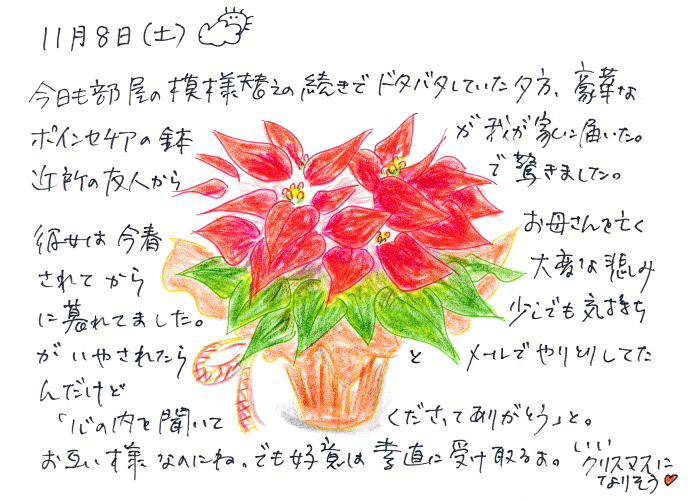 11月8日(土)
今日も部屋の模様替えの続きでドタバタしていた夕方、豪華な
ポインセチアの鉢が我が家に届いた。
近所の友人からで驚きました。
彼女は今春お母さんを亡く
されてから大変な悲しみ
に暮れてました。少しでも気持ち
がいやされたらとメールでやりとりしてた
んだけど
「心の内を聞いてくださってありがとう」と。
お互い様なのにね。でも好意は素直に受け取るよ。いい
クリスマスに
なりそう